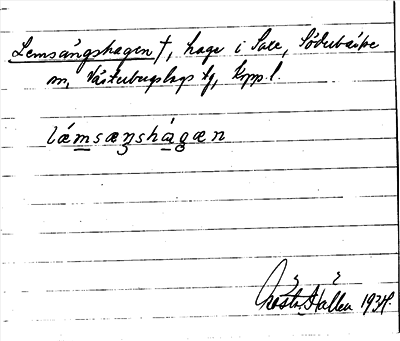 Lemsängshagen †, hage i Sale, Söderbärke
sn, Västerbergslags tg, Kopp l.
lámsæŋshágæn
Gösta Hallen 1934.